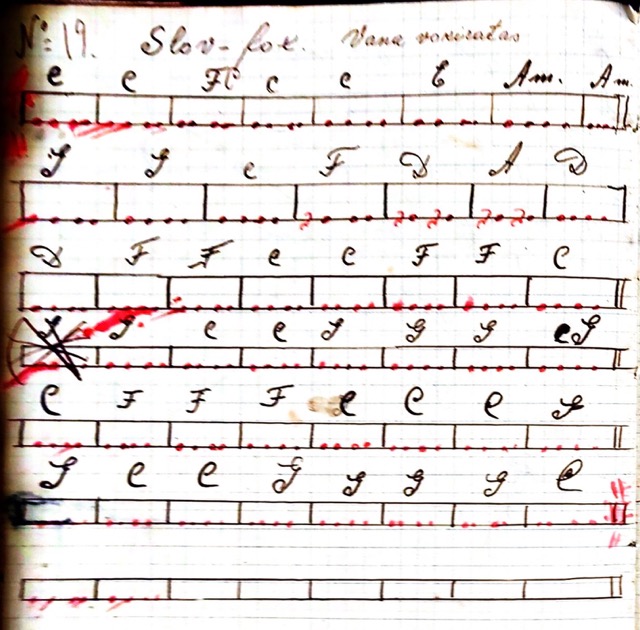 No: 19. Slov-fox. Vana voxiratas
C C FC C C E Am. Am.
G G C F D A D
D F F C C F F C
G G C C G G G CG
C F F F C C C G
G C C G G G G C